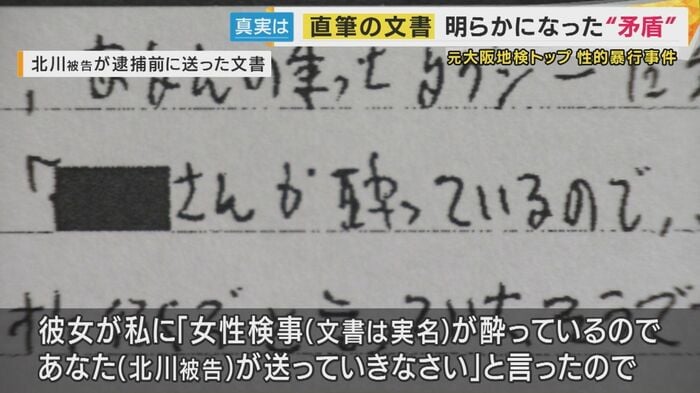 真実は 直筆の文書 明らかになった“矛盾”
元大阪地検トップ 性的暴行事件
北川被告が逮捕前に送った文書
、あなたの乗ったタクシーに
「 さんが酔っているので、
彼女が私に「女性検事(文書は実名)が酔っているので
あなた(北川被告)が送っていきなさい」と言ったので